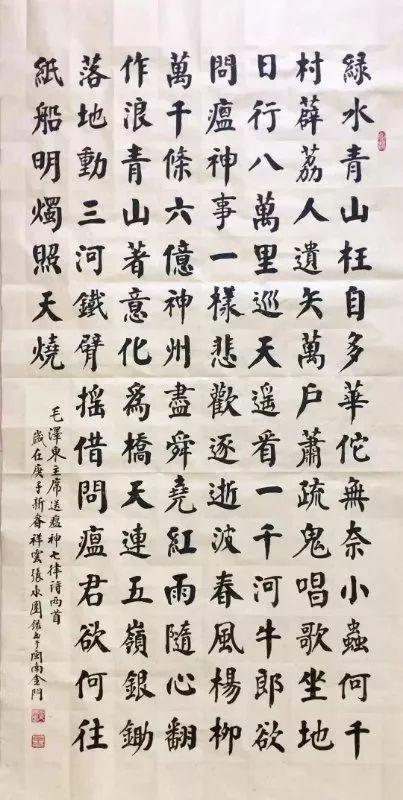 綠水青山枉自多華佗無奈小蟲何千
村薜荔人遺矢萬戶蕭疏鬼唱歌坐地
日行八萬里巡天遥看一千河牛郎欲
問瘟神事一樣悲歡逐逝波春風楊柳
萬千條六億神州盡舜堯紅雨隨心翻
作浪青山著意化為橋天連五嶺銀鋤
落地動三河鐵臂摇借問瘟君欲何往
紙船明燭照天燒
毛澤東主席送瘟神七律詩兩首
歲在庚子新春祥雲張永團於閩南金門